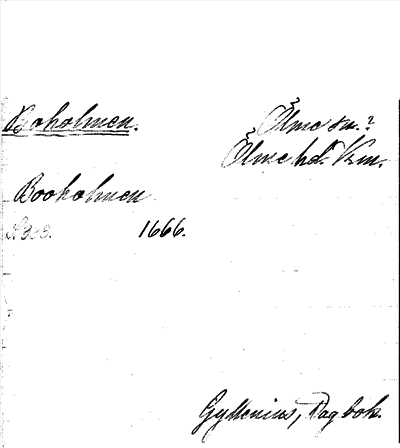 Boholmen. Ölme sn.?
Ölme hd. Vrm.
Booholmen
S. 303. 1666.
Gyllenius, Dagbok.